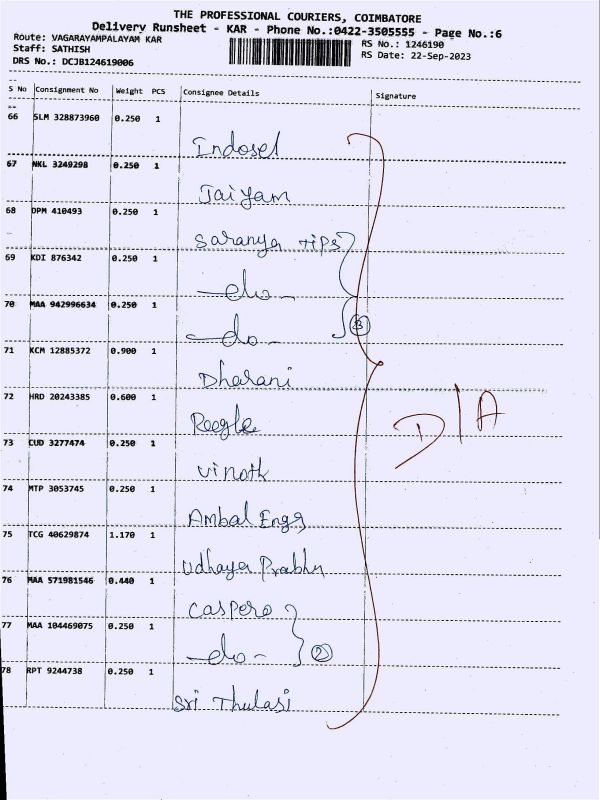 THE PROFESSIONAL COURIERS, COIMBATORE
Delivery Runsheet - KAR - Phone No.:0422-3505555 - Page No.:6
Route: VAGARAYAMPALAYAM KAR
Staff: SATHISH
DRS No.: DCJB124619006
RS No.: 1246190
RS Date: 22-Sep-2023
S No Consignment No Weight PCS Consignee Details Signature
66 SLM 328873960 0.250 1
Indosel
67 NKL 3249298 0.250 1
Jaiyam
68 DPM 410493 0.250 1
Saranya Tips
69 KDI 876342 0.250 1
-do-
70 MAA 942996634 0.250 1
-do- 3
71 KCM 12885372 0.900 1
Dharani
72 HRD 20243385 0.600 1
D/A
73 CUD 3277474 0.250 1
Vinoth
74 MTP 3053745 0.250 1
Ambal Engg
75 TCG 40629874 1.170 1
Udhaya Prabhu
76 MAA 571981546 0.440 1
Caspero
77 MAA 104469075 0.250 1
-do- 2
78 RPT 9244738 0.250 1
Sri Thulasi